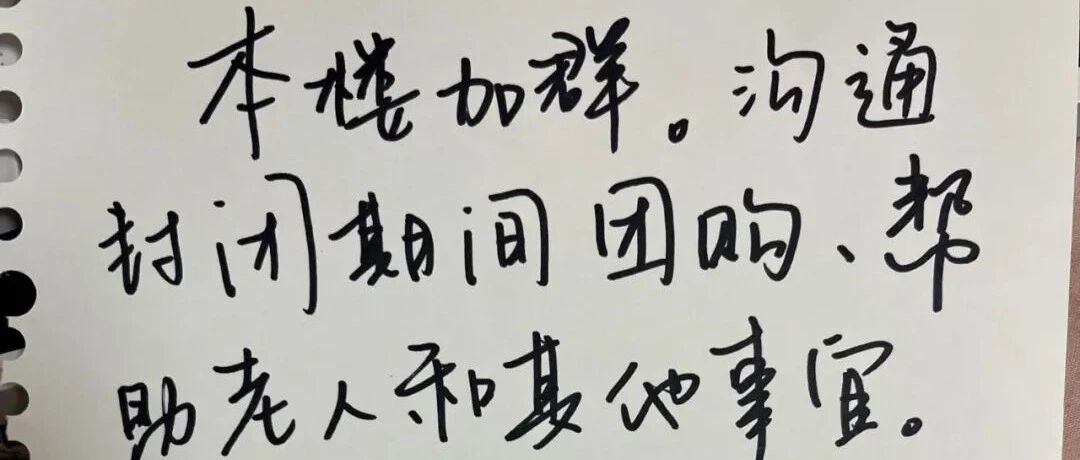 本楼加群。沟通
封闭期间团购、帮
助老人和其他事宜。